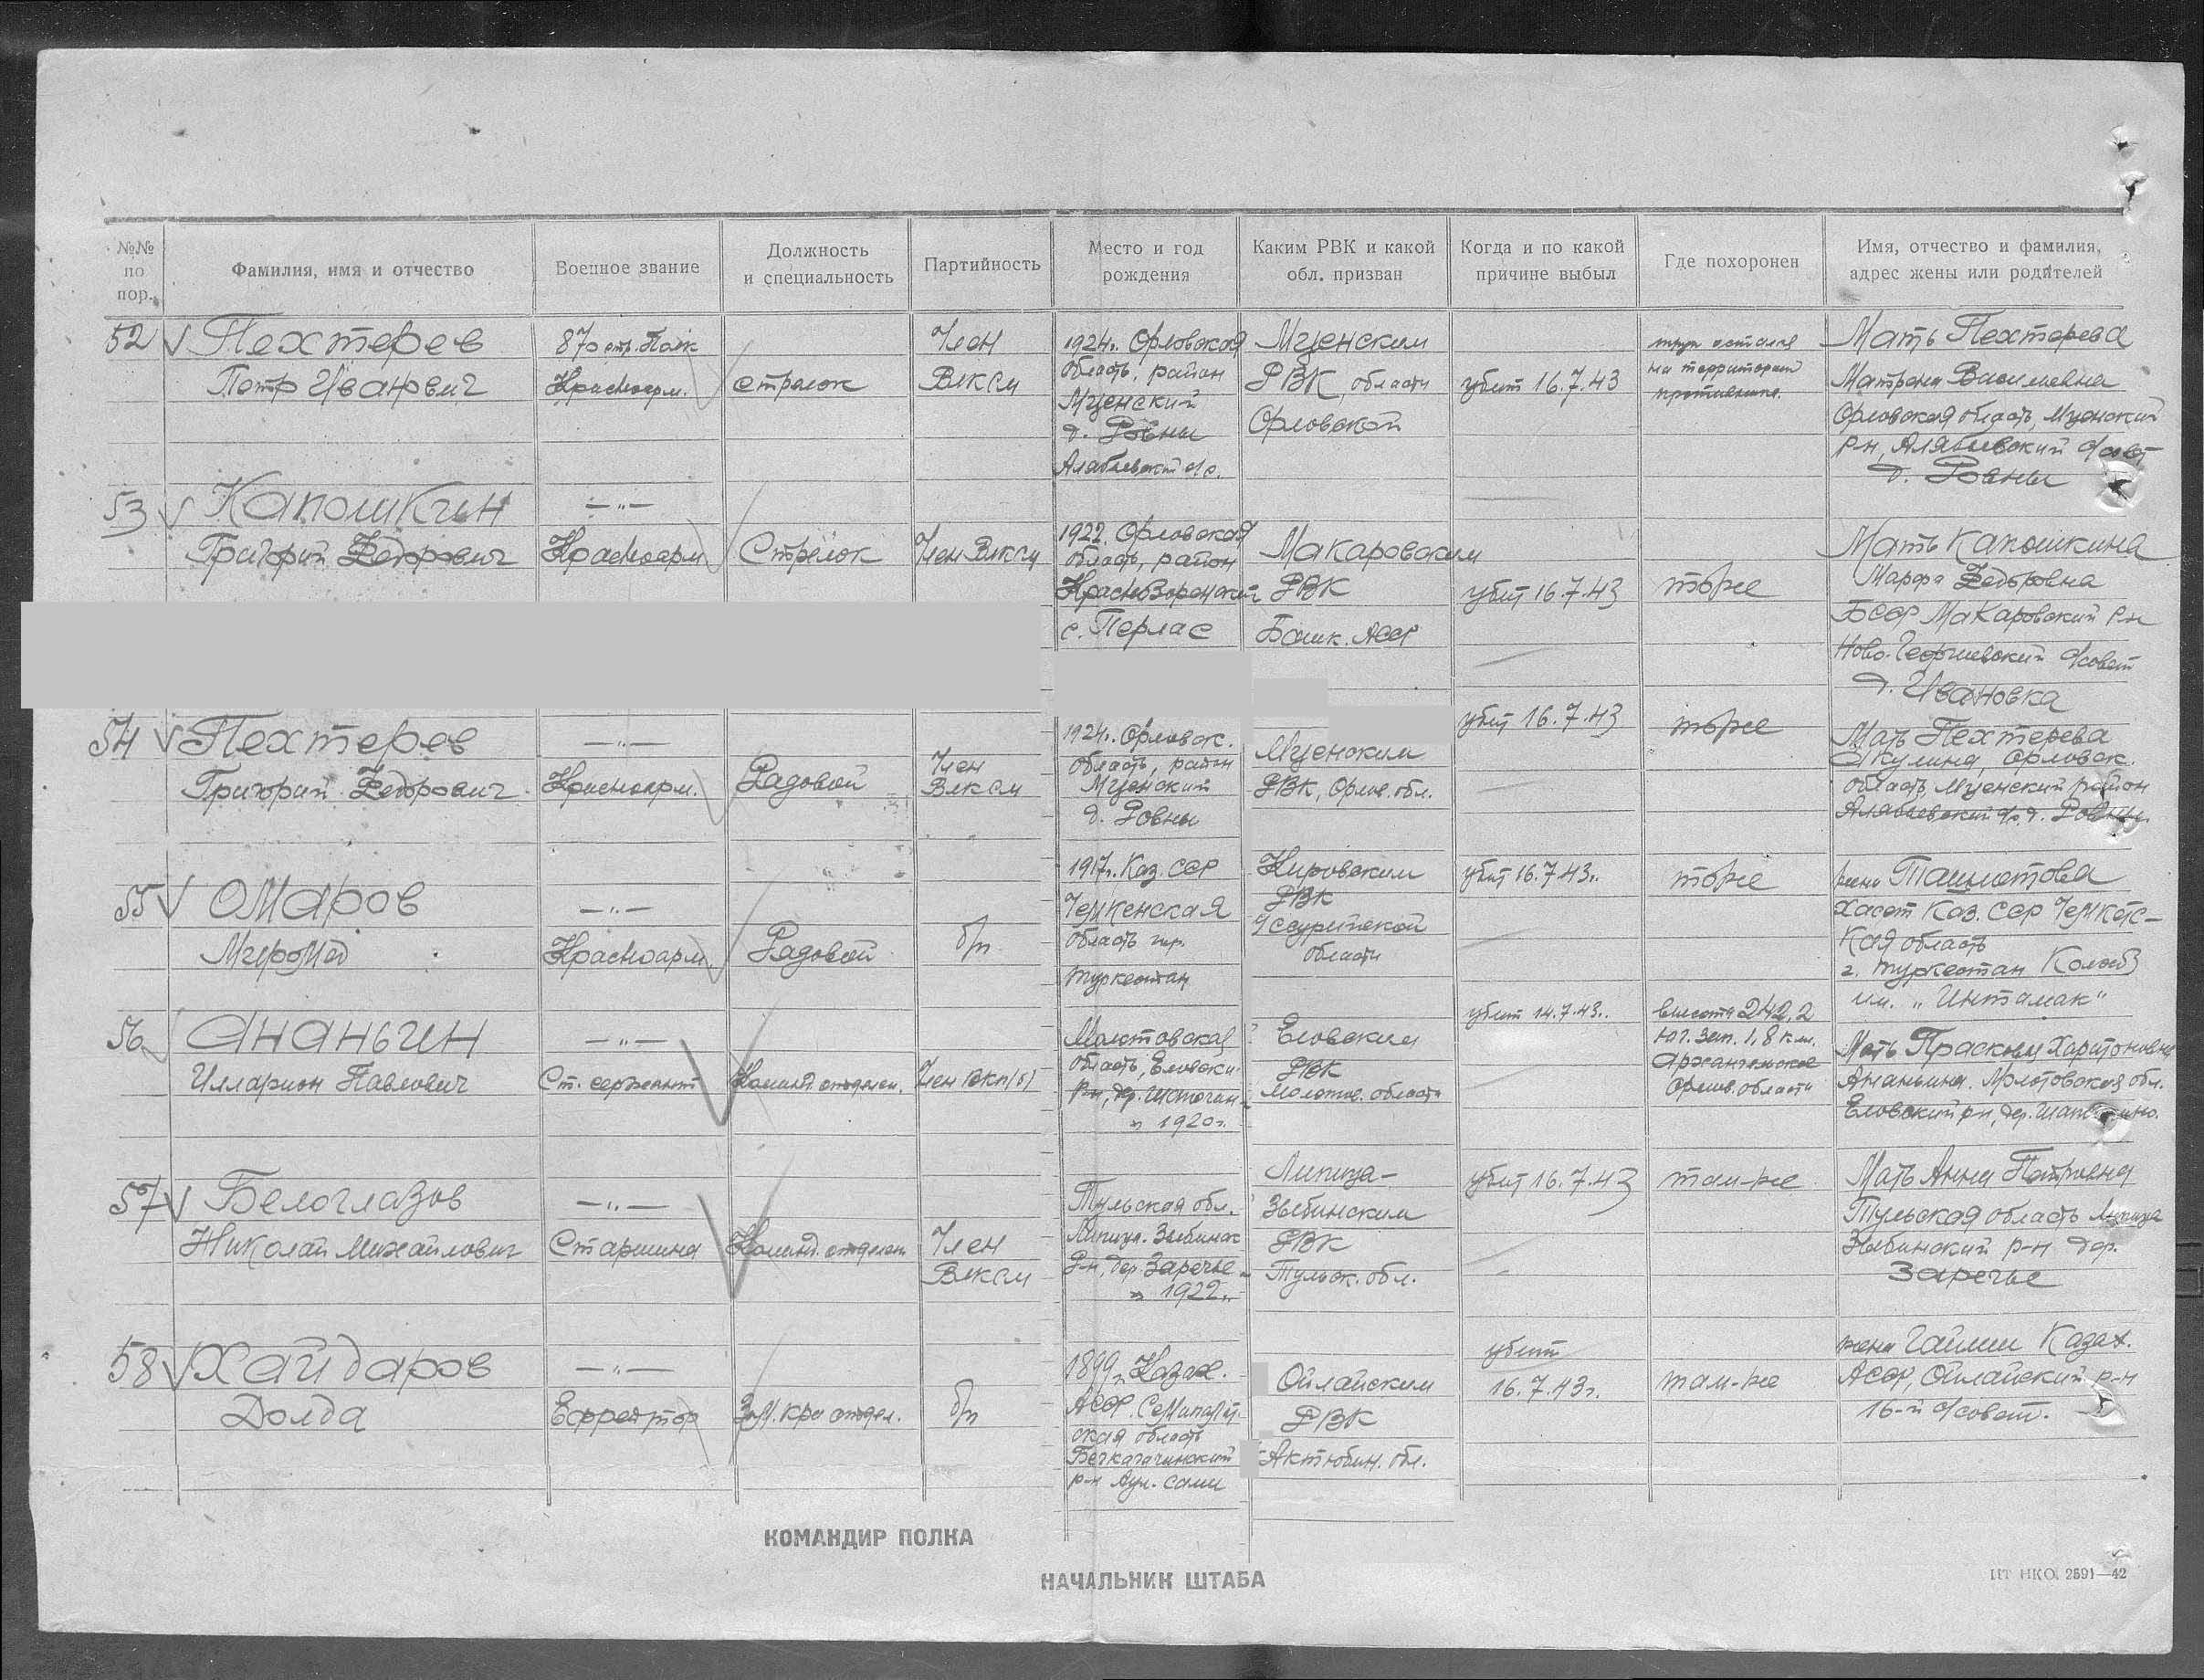 №№ по пор.
Фамилия, имя и отчество
Военное звание
Должность и специальность
Партийность
Место и год рождения
Каким РВК и какой обл. призван
Когда и по какой причине выбыл
Где похоронен
Имя, отчество и фамилия, адрес жены или родителей
52 Пехтерев
Петр Иванович
870 стр. Полк
Красноарм.
стрелок
Член
ВЛКСМ
1924г. Орловская
область, район
Мценский
д. Ровны
Алябьевский с/с.
Мценским
РВК, области
Орловской
убит 16.7.43
труп остался
на территории
противника.
Мать Пехтерева
Матрена Василевна
Орловская область, Мценский
р-н, Алябьевский с/совет
д. Ровны
53 Капошкин
Григорий Федорович
—"—
Красноарм
Стрелок
Член ВЛКСМ
1922. Орловская
область, район
с. Перлас
Макаровским
РВК
Башк. АССР
убит 16.7.43
тоже
Мать Капошкина
Марфа Федоровна
БССР Макаровский р-н
Ново-Георгиевский с/совет
д. Ивановка
54 Пехтерев
Григорий Федорович
—"—
Красноарм.
Рядовой
Член
ВЛКСМ
1924г. Орловск.
область, район
Мценский
д. Ровны
Мценским
РВК, Орлов. обл.
убит 16.7.43
тоже
Мать Пехтерева
Акулина, Орловск.
область, Мценский район
Алябьевский с/с, д. Ровны.
55 Омаров
—"—
Красноарм
Рядовой
б/п
1917г. Каз. ССР
Чемкенская
область гор.
Туркестан
Кировским
РВК
Уссурийской
области
убит 16.7.43г.
тоже
жена Ташметова
Хасет Каз. ССР Чемкетс-
кая область
г. Туркестан Колхоз
им. „Интамак"
56 Ананьин
Илларион Павлович
—"—
Ст. сержант
Команд. отделен.
Член ВКП(б)
Молотовская
область, Еловски
р-н, дер.
1920г.
Еловским
РВК
Молотов. области
убит 14.7.43г.
высота 242,2
юг. зап. 1,8 км.
Архангельское
Орлов. области
Мать Прасковья Харитоновна
Ананьина. Молотовская обл.
Еловский р-н, дер.
57 Белоглазов
Николай Михайлович
—"—
Старшина
Команд. отделен
Член
ВЛКСМ
Тульская обл.
Липиц. Зыбинск
р-н, дер. Заречье
1922г.
Липица-
Зыбинским
РВК
Тульск. обл.
убит 16.7.43
там-же
Мать Анна Петровна
Тульская область Липица
Зыбинский р-н дер.
Заречье
58 Хайдаров
Долда
—"—
Ефрейтор
Зам. кра отдел.
б/п
1899г. Казах.
АССР. Семипалат.
ская область
р-н Аул. сами
Ойлайским
РВК
Актюбин. обл.
убит
16.7.43г.
там-же
жена Гайши Казах.
АССР, Ойлайский р-н
16-й с/совет.
КОМАНДИР ПОЛКА
НАЧАЛЬНИК ШТАБА
ЦТ НКО. 2591—42